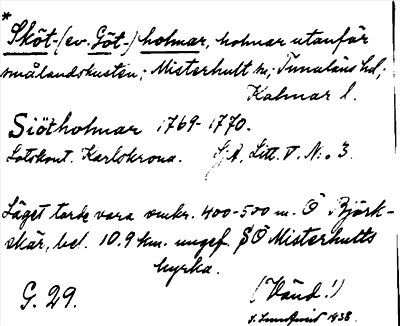 *Sköt-(ev. Göt-) holmar, holmar utanför
smålandskusten; Misterhult sn; Tunaläns hd;
Kalmar l.
Siötholmar 1769-1770.
Lotskont. Karlskrona. SjA, Litt. V. N:o 3.
Läget torde vara omkr. 400-500 m. Ö Björk-
skär, bel. 10.9 km. ungef. SÖ Misterhults
kyrka.
G. 29. (Vänd!)
1938.